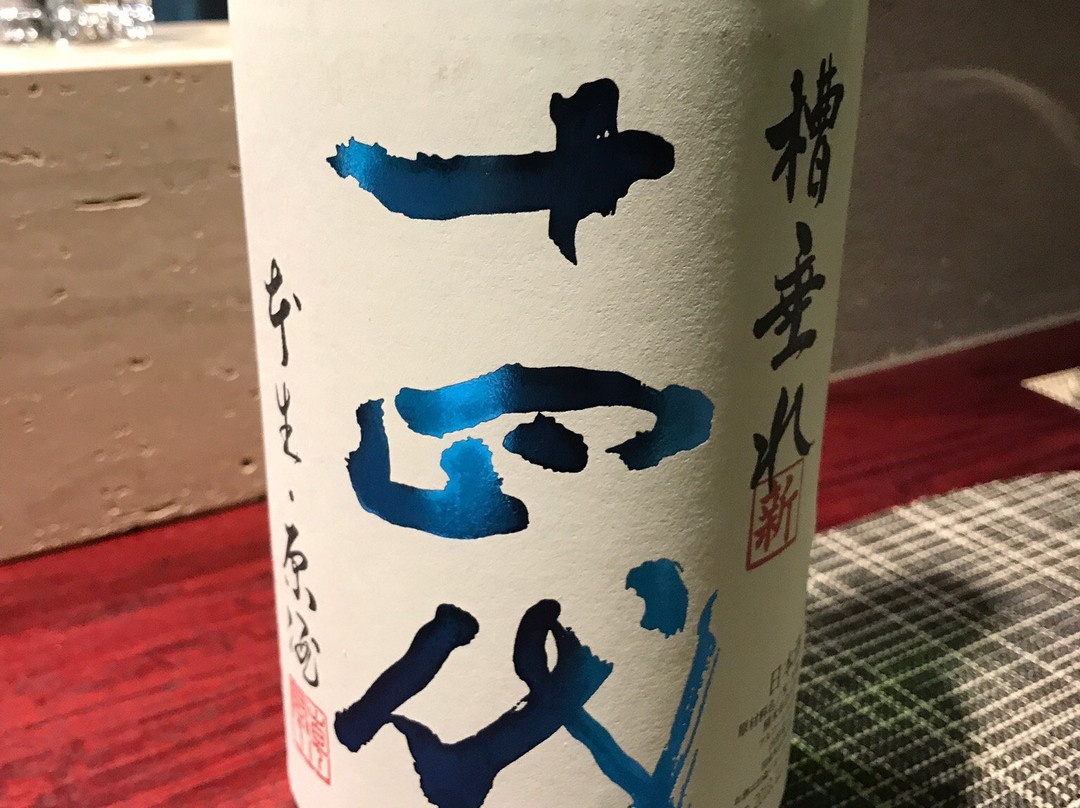 槽垂れ
新
十四代
本生・原酒
日本